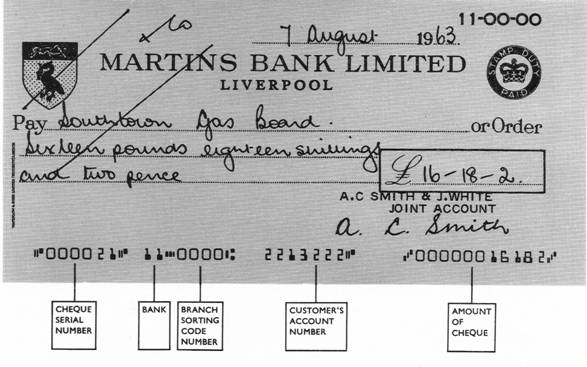 11-00-00
& Co
7 August 1963
MARTINS BANK LIMITED
LIVERPOOL
STAMP DUTY PAID
Pay Southtown Gas Board. or Order
Sixteen pounds eighteen shillings
and two pence
£ 16-18-2.
A.C SMITH & J.WHITE
JOINT ACCOUNT
A. C. Smith
⑈000021⑈ 11⑉0000⑆ 2213222⑈ ⑇00000016182⑇
CHEQUE SERIAL NUMBER
BANK
BRANCH SORTING CODE NUMBER
CUSTOMER'S ACCOUNT NUMBER
AMOUNT OF CHEQUE